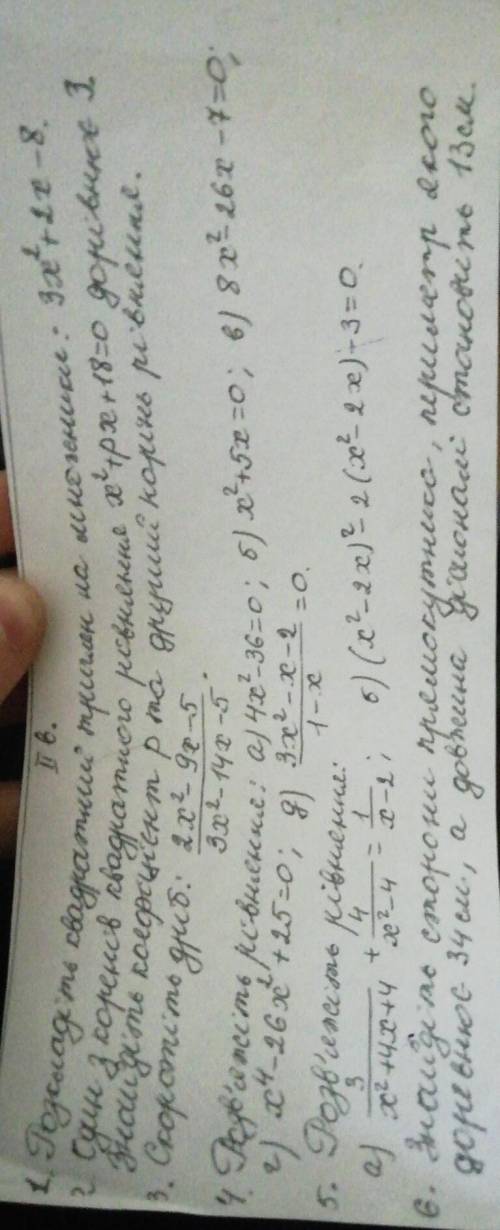 II в.
1. Розкладіть квадратний тричлен на множники: 3x² + 2x - 8.
2. Один з коренів квадратного рівняння x² + px + 18 = 0 дорівнює 3.
Знайдіть коефіцієнт p та другий корінь рівняння.
3. Скоротіть дріб: (2x² - 9x - 5)/(3x² - 14x - 5).
4. Розв'яжіть рівняння: а) 4x² - 36 = 0; б) x² + 5x = 0; в) 8x² - 26x - 7 = 0;
г) x⁴ - 26x² + 25 = 0; д) (3x² - x - 2)/(1 - x) = 0.
5. Розв'яжіть рівняння:
а) 3/(x² + 4x + 4) + 4/(x² - 4) = 1/(x - 2); б) (x² - 2x)² - 2(x² - 2x) - 3 = 0.
6. Знайдіть сторони прямокутника, периметр якого
дорівнює 34 см, а довжина діагоналі становить 13 см.